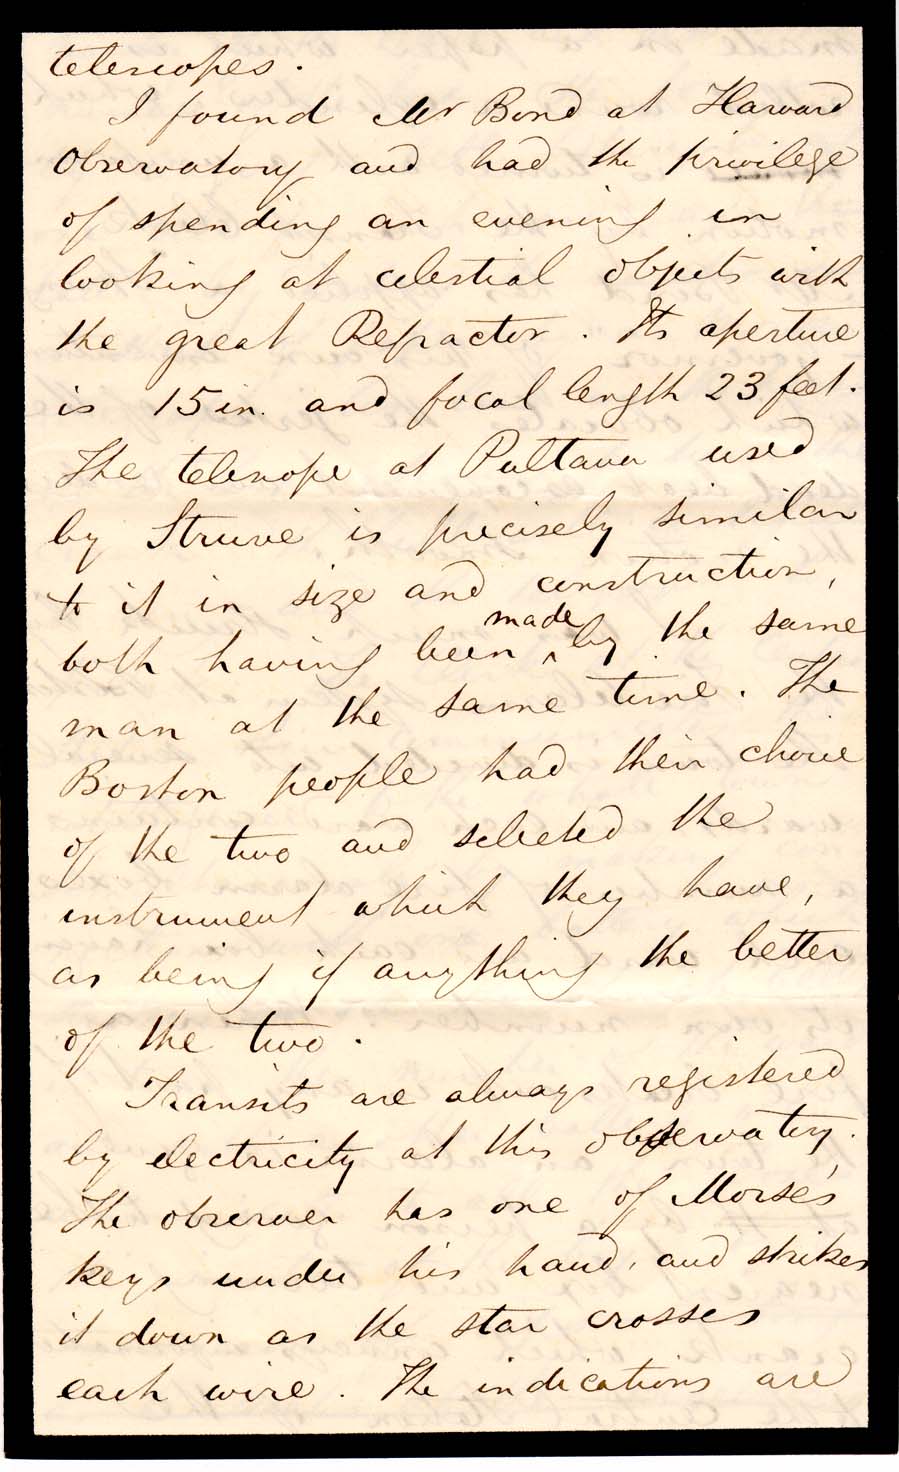 telescopes.
I found Mr Bond at Harvard
Observatory and had the privilege
of spending an evening in
looking at celestial objects with
the great Refractor. Its aperture
is 15 in. and focal length 23 feet.
The telescope at Pultava used
by Struve is precisely similar
to it in size and construction,
both having been made by the same
man at the same time. The
Boston people had their choice
of the two and selected the
instrument which they have,
as being if anything the better
of the two.
Transits are always registered
by electricity at this observatory.
The observer has one of Morse's
keys under his hand, and strikes
it down as the star crosses
each wire. The indications are